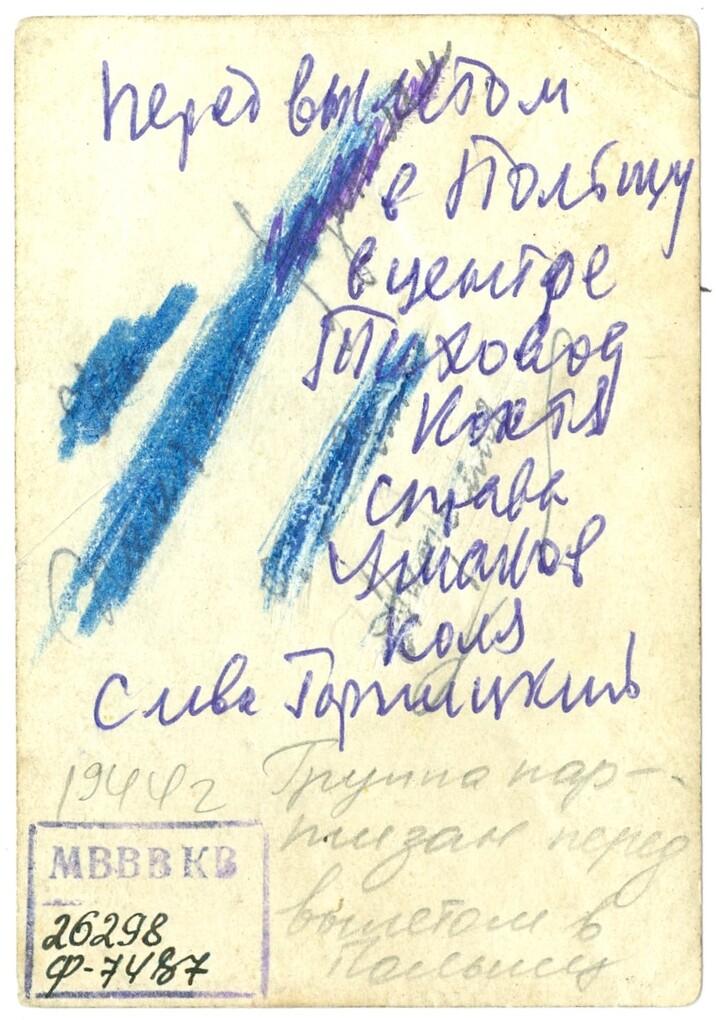 Перед вылетом
в Польщу
в центре
Тиховод
Костя
справа
Ушаков
Коля
Слева Горницкий
1944 г
Группа пар-
тизан перед
вылетом в
Польшу
МВВВКВ
26298
Ф-7487